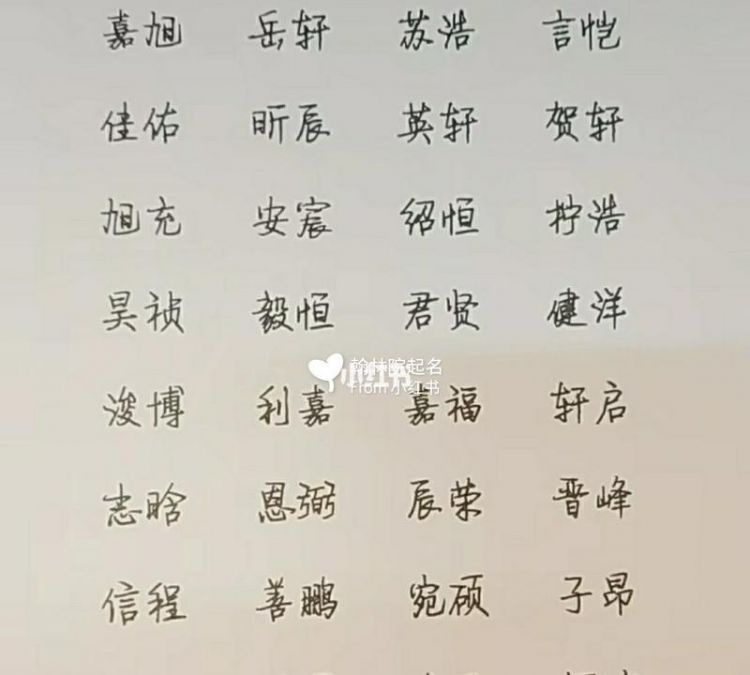 嘉旭 岳轩 苏浩 言恺
佳佑 昕辰 英轩 贺轩
旭充 安宸 绍恒 拧浩
昊祯 毅恒 君贤 健洋
翰林院起名
小红书
From 小红书
浚博 利嘉 嘉福 轩启
志晗 恩弼 辰荣 晋峰
信程 善鹏 宛硕 子昂